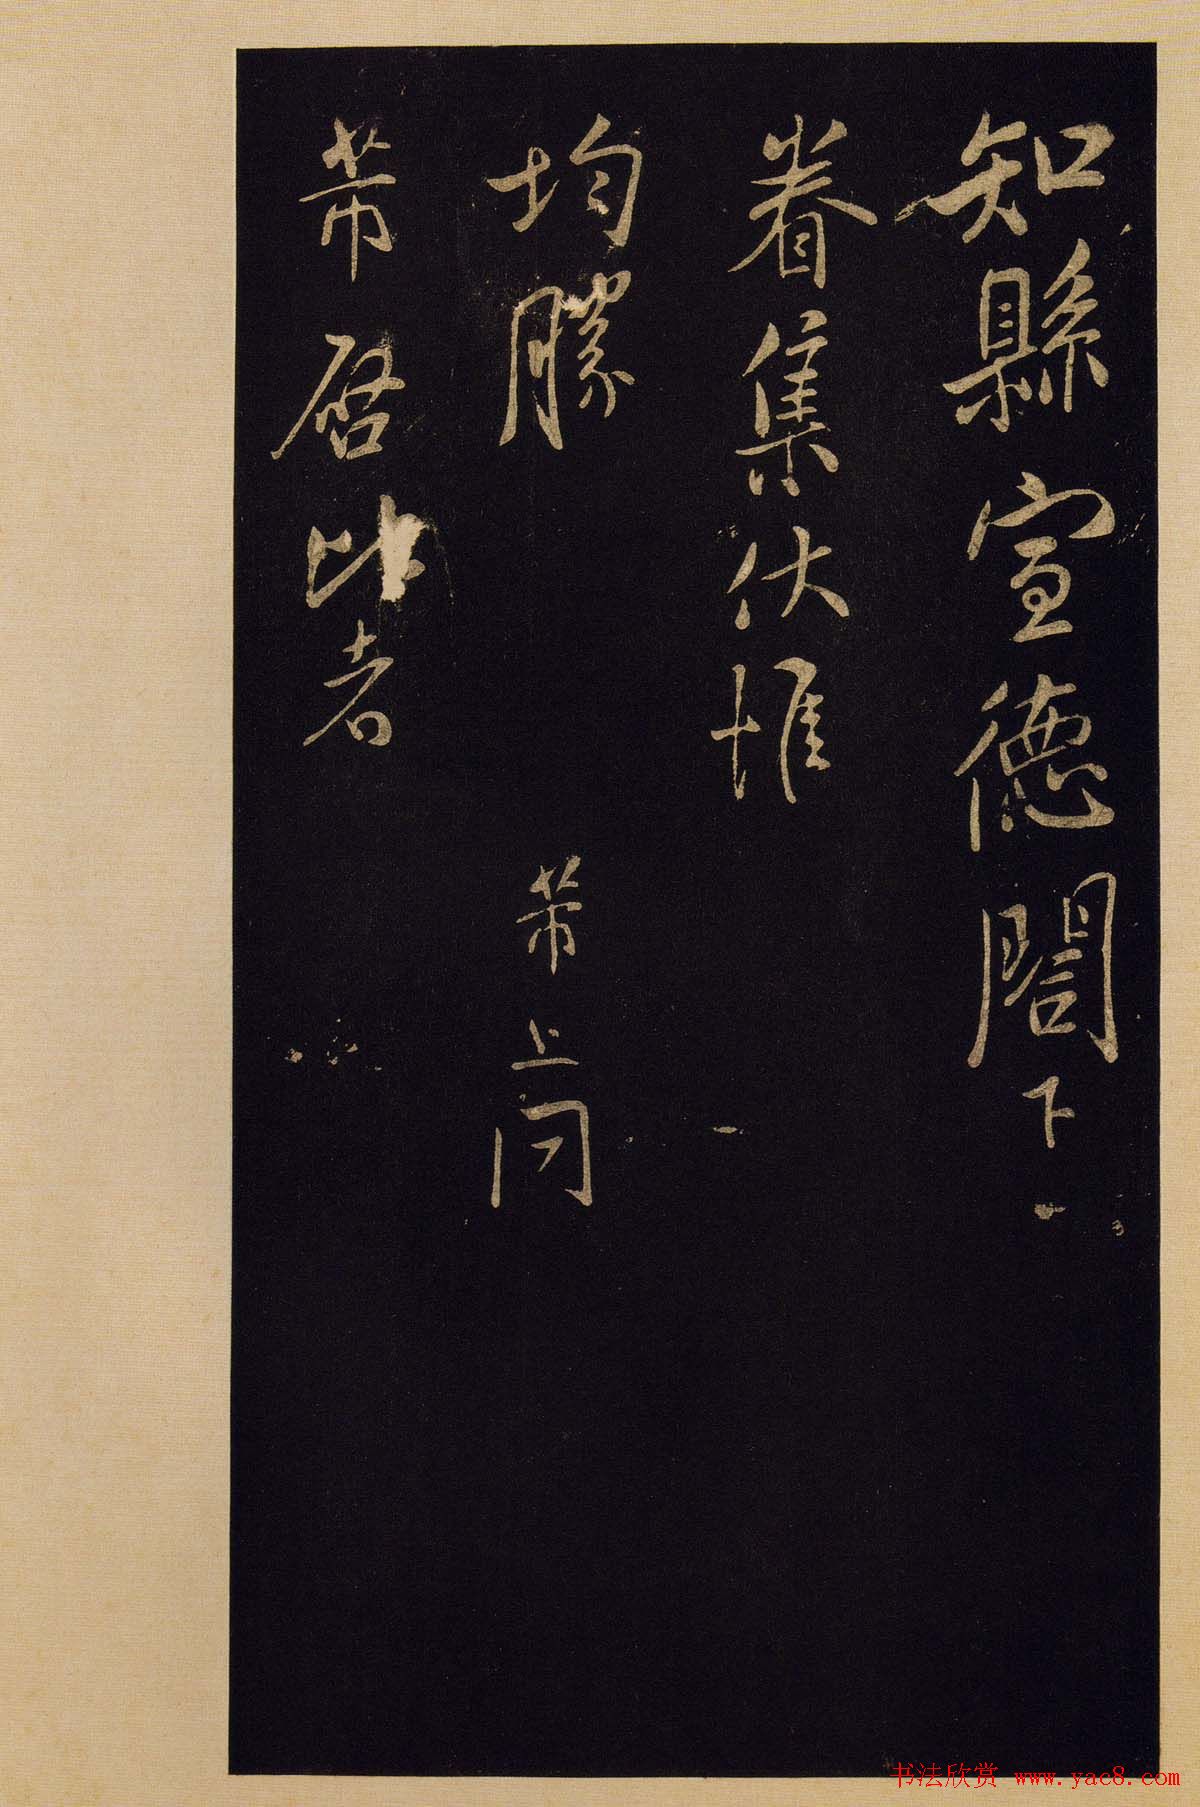 知縣宣德閤下
眷集伏惟
均勝 芾上問
芾啓比者
书法欣赏 www.yac8.com